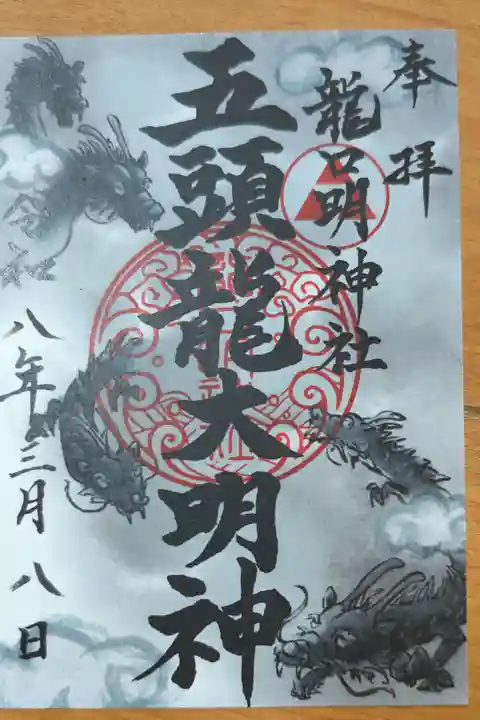 奉拝
龍口明神社
五頭龍大明神
令和
八年三月八日